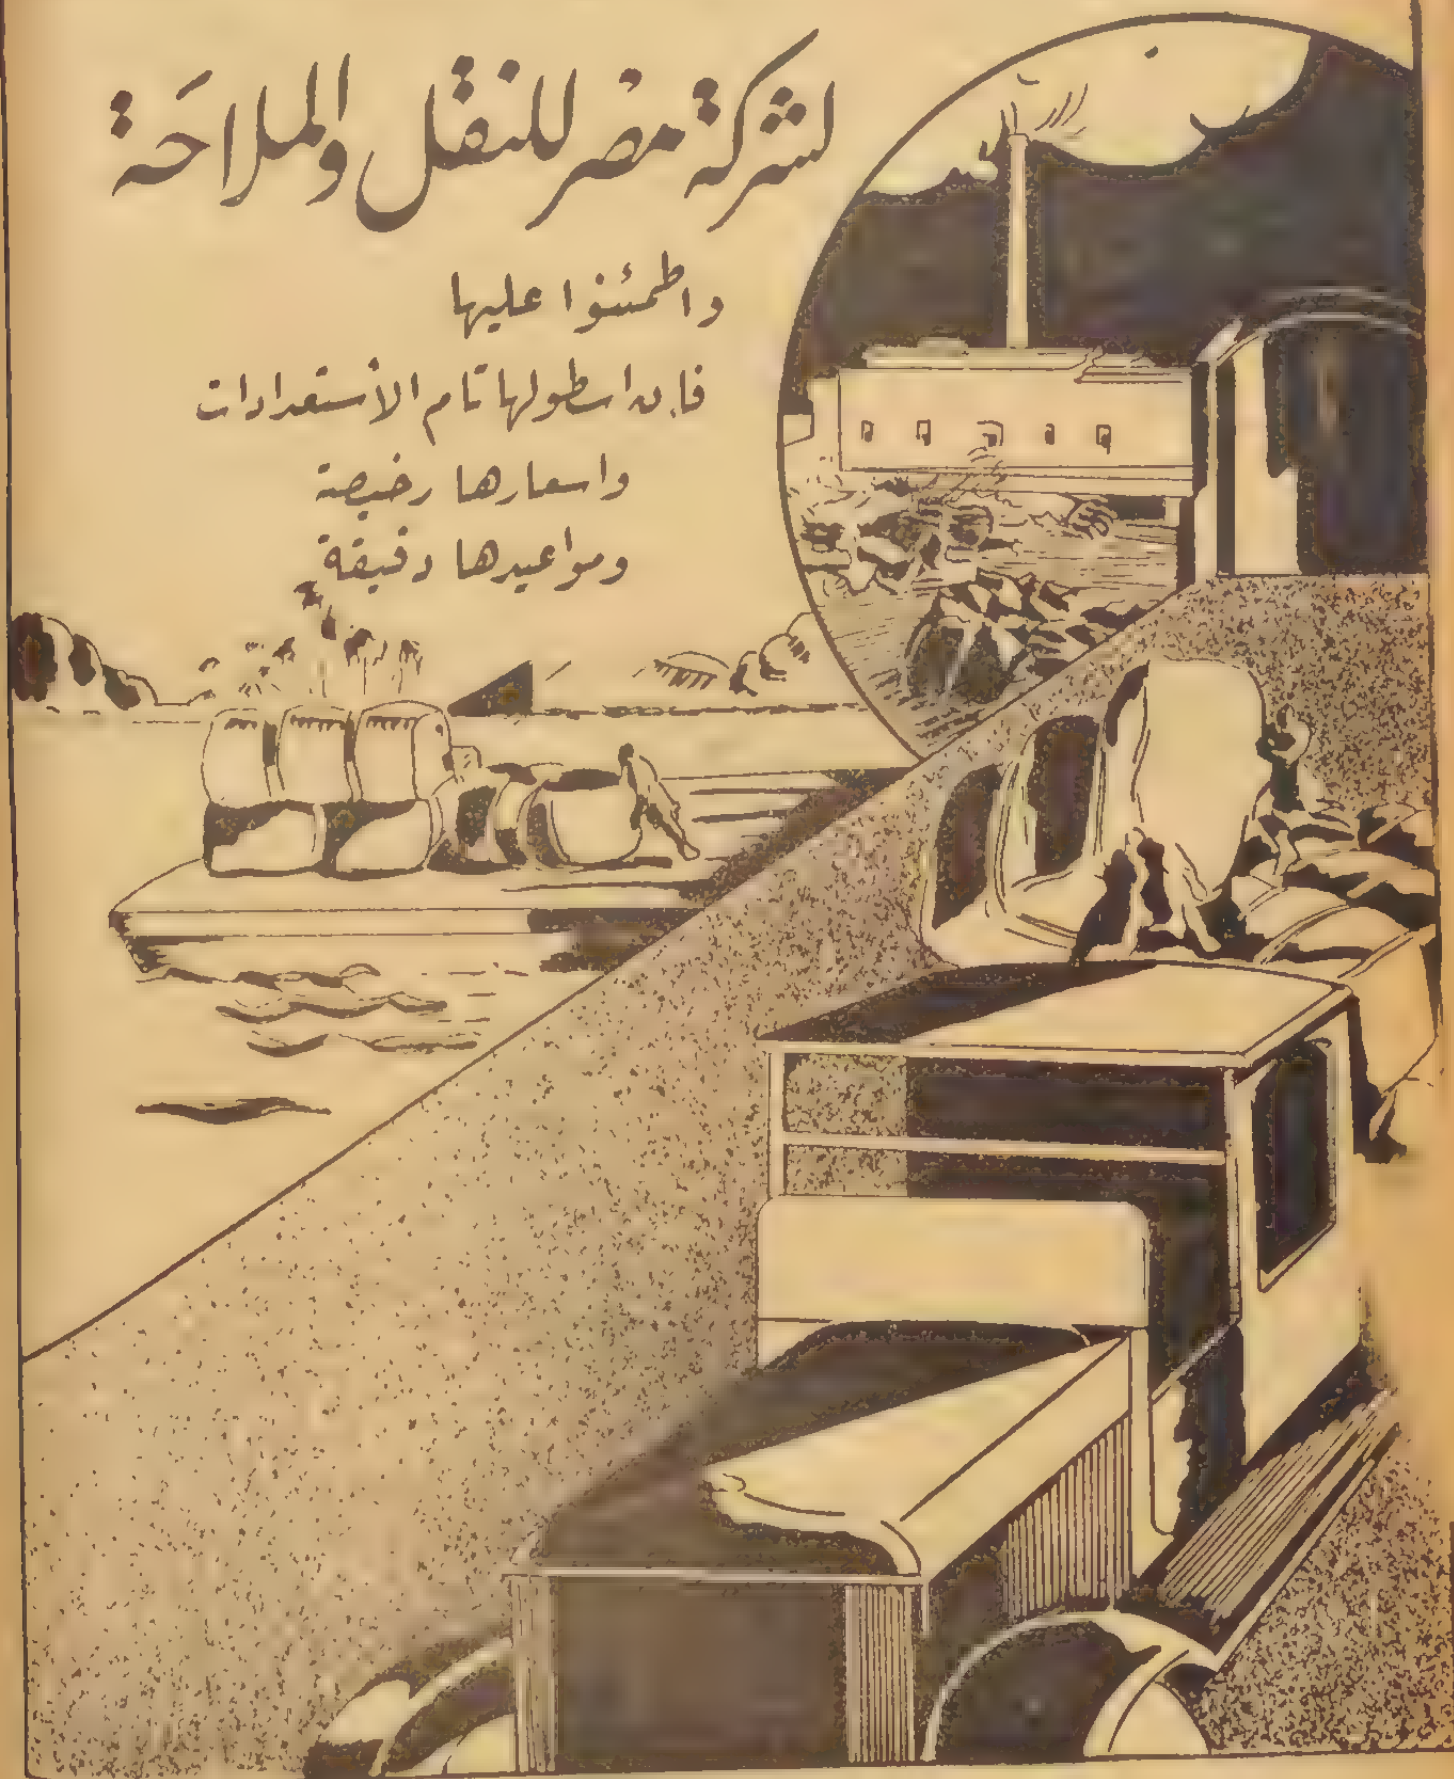 لشركة مصر للنقل والملاحة
واطمئنوا عليها
فإن اسطولها تام الأستعدادات
واسعارها رخيصة
ومواعيدها دقيقة